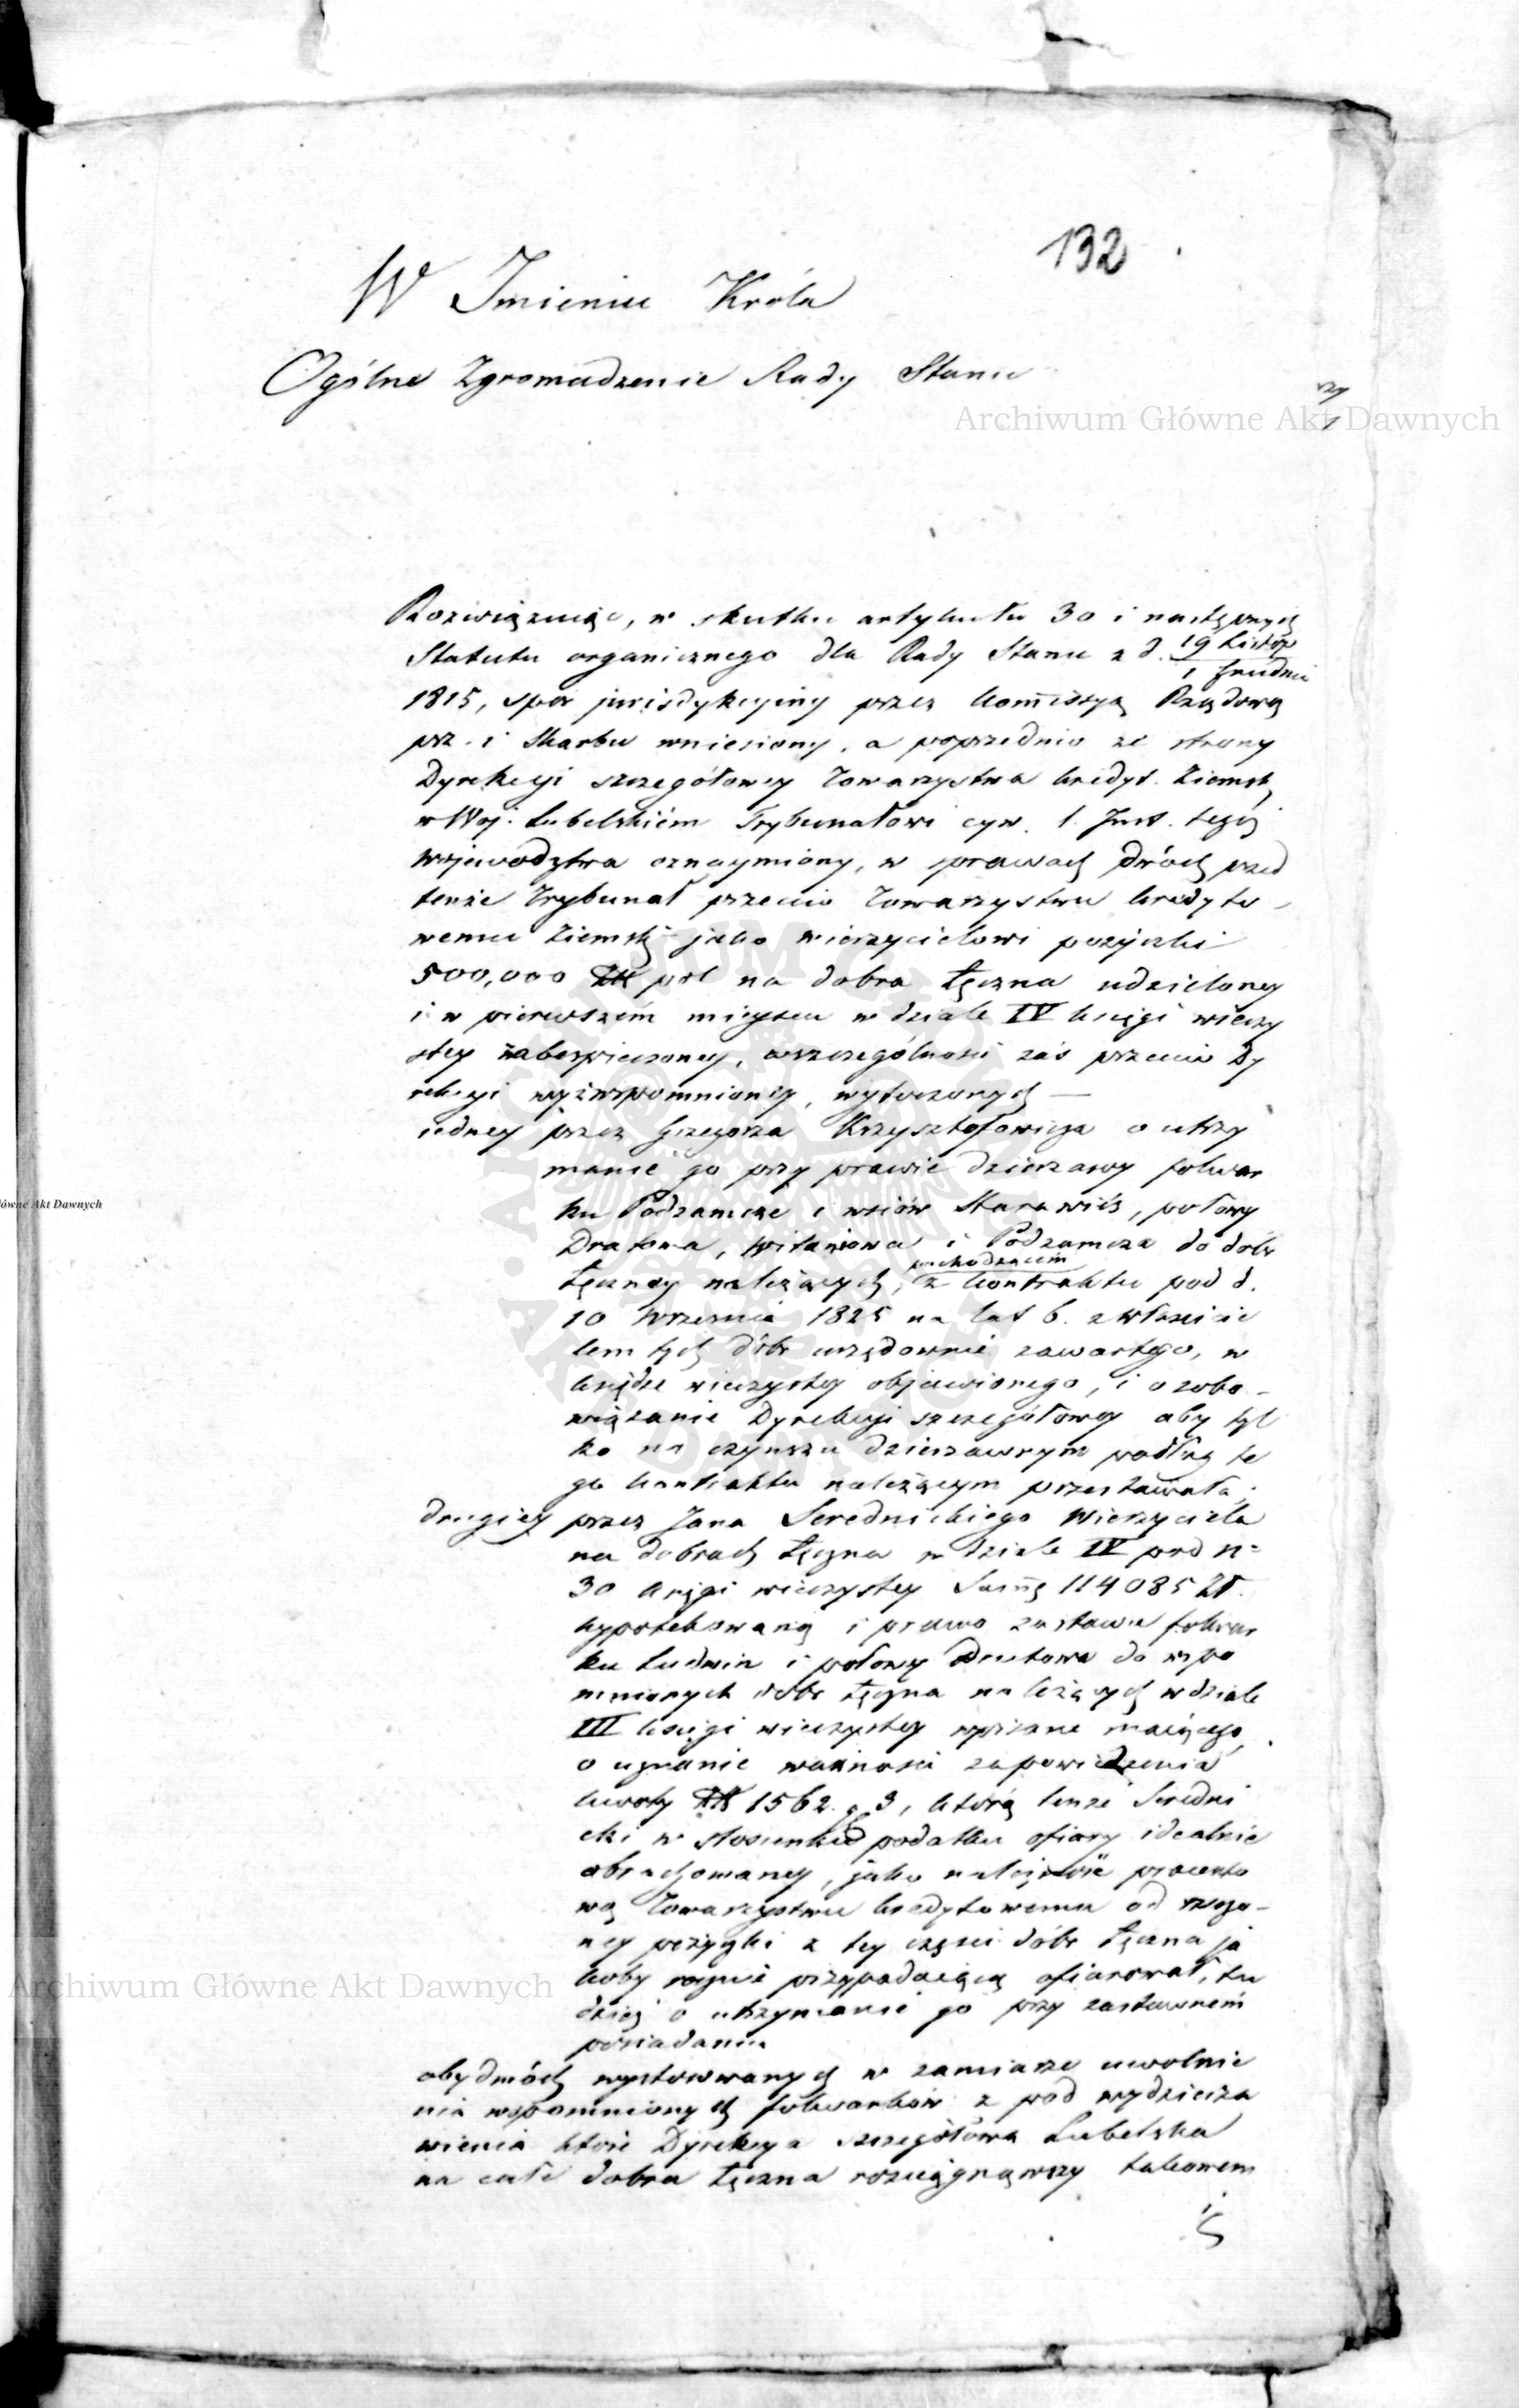 132
W Imieniu Króla
Ogólne Zgromadzenie Rady Stanu
Archiwum Główne Akt Dawnych
Rozwiązując, w skutku artykułu 30 i następnych
Statutu organicznego dla Rady Stanu z d. 19 Listop
1 Grudnia
1815, spór jurisdykcyiny przez Kommissyą Rządową
prz. i Skarbu wniesiony, a poprzednio ze strony
Dyrekcyi szczegółowey Towarzystwa kredyt. Ziemsk
w Woj. Lubelskiém Trybunałowi cyw. 1. Inst. tegoż
Województwa oznaymiony, w sprawach dwóch przed
tenże Trybunał przeciw Towarzystwu kredyto-
wemu Ziemsk jako wierzycielowi pożyczki
500,000 Zł pol na dobra Łęczna udzieloney
i w pierwszém mieyscu w dziale IV księgi wieczy
stey zabezpieczoney, w szczególności zaś przeciw Dy
rekcyi wyżwspomnioney, wytoczonych —
iedney przez Grzegorza Krzysztofowicza o utrzy
manie go przy prawie dzierżawy folwar
ku Podzamcze i wsiów Starawieś, połowy
Dratowa, Witaniowa i Podzamcza do dóbr
Łęczney należących, z kontraktu pod d.
pochodzącém
10 Września 1825 na lat 6. z właścicie
lem tych dóbr urzędownie zawartego, w
księdze wieczystey objawionego, i o zobo-
wiązanie Dyrekcyi szczegółowey aby tyl
ko na czynszu dzierżawnym podług te
go kontraktu należącym przestawała;
drugiey przez Jana Serednickiego Wierzyciela
na dobrach Łęczna w dziale IV pod N=
30 księgi wieczystey Summę 114085 Zł.
hypotekowaną i prawo zastawu folwar
ku Ludwin i połowy Dratowa do wspo
mnionych dóbr Łęczna należących w dziale
III księgi wieczystey wpisane maiącego,
o uznanie ważności zapowiedzenia
kwoty Zł 1562. g 3, którą tenże Seredni
cki w stosunku podatku ofiary idealnie
obrachowaney, jako należność procento
wą Towarzystwu kredytowemu od rzeczo-
ney pożyczki z tey części dóbr Łęczna ja
koby przypadaiącą ofiarował, tu
dzież o utrzymanie go przy zastawném
posiadaniu
obydwóch wystosowanych w zamiarze uwolnie
nia wspomnionych folwarków z pod wydzierża
wienia które Dyrekcya szczegółowa Lubelska
na całe dobra Łęczna rozciągnąwszy takowem
Archiwum Główne Akt Dawnych
ówne Akt Dawnych